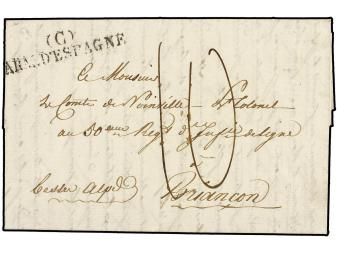 (C)
ARM. D'ESPAGNE
A Monsieur
Le Comte de Noinville Lt Colonel
au 30eme Regt d'Infie de Ligne
10
à
Briançon
basses alpes